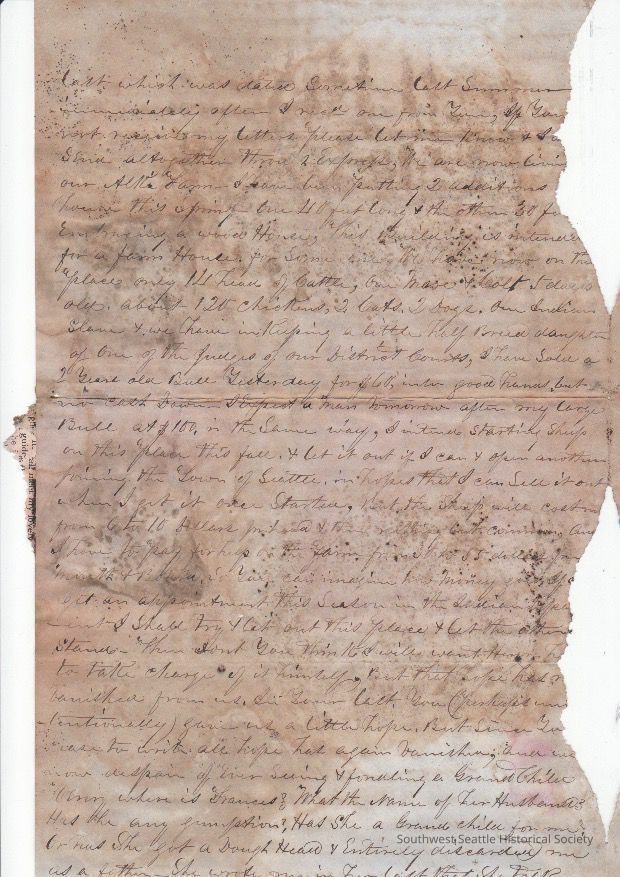 last which was dated Sometime last Summer
immediately after I recd one from You, If You
dont receive my letters please let me know & I
Send altogether three by Express, We are now livin
our Alki Farm I have been putting 2 additions
house this Spring One 40 feet long & the other 30 fe
Enclosing a wood House, This building is intende
for a farm House. for Some we have now on the
place only 14 head of Cattle, One Mare & Colt 5 days
old. about 120 chickens, 2 Cats. 2 Dogs. One Indian
Slave & we have in keeping a little half Breed daughter
of One of the Judges of our District Courts, I have Sold a
2 Years old Bull Yesterday for $60, into good hand, but
no cash Down I Expect a Man tomorrow after my large
Bull at $100, in the Same way, I intend Starting Sheep
on this place this fall. & let it out if I can & open another
joining the Town of Seattle, in hopes that I can Sell it out
when I get it once Started, But the Sheep will cost me
from 6 to 10 Dollars pr head & the common, and
I have to pay for help on the farm from to 55 dollars pr
month & So You can imagine how money goes. If
get an appointment this Season in the Indian Depa
-ment I Shall try & let out this place & let the other
Stand. Then dont You think will want
to take charge of it himself, But that hope has
vanished from us. In Your last You (perhaps un
-tentionally) gave us a little hope. But Since You
cease to write all hope has again vanished, and we
now despair of Ever Seeing & fondling a Grand Child
where is Frances? What the Name of her Husband?
Has he any gumption? Has She a Grand child for me
Or has She got a Dough Head & Entirely discarded me
as a father She wrote me in her last that
guide
Southwest Seattle Historical Society